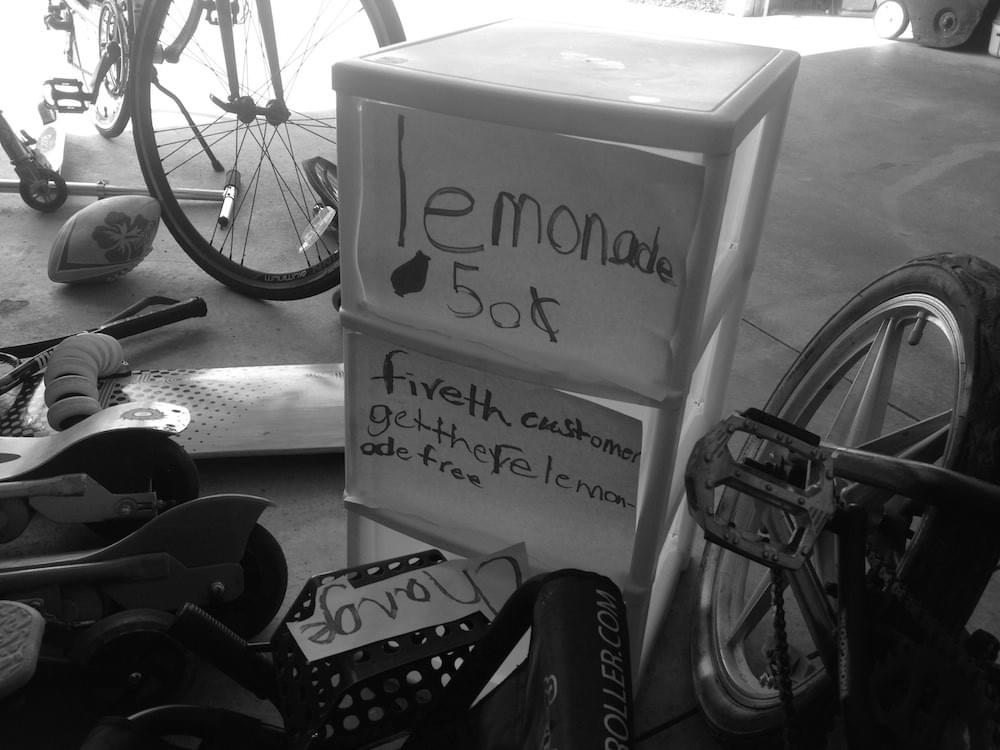 lemonade
50¢
fiveth customer
getthere lemon-
ade free
change
ROLLER.COM